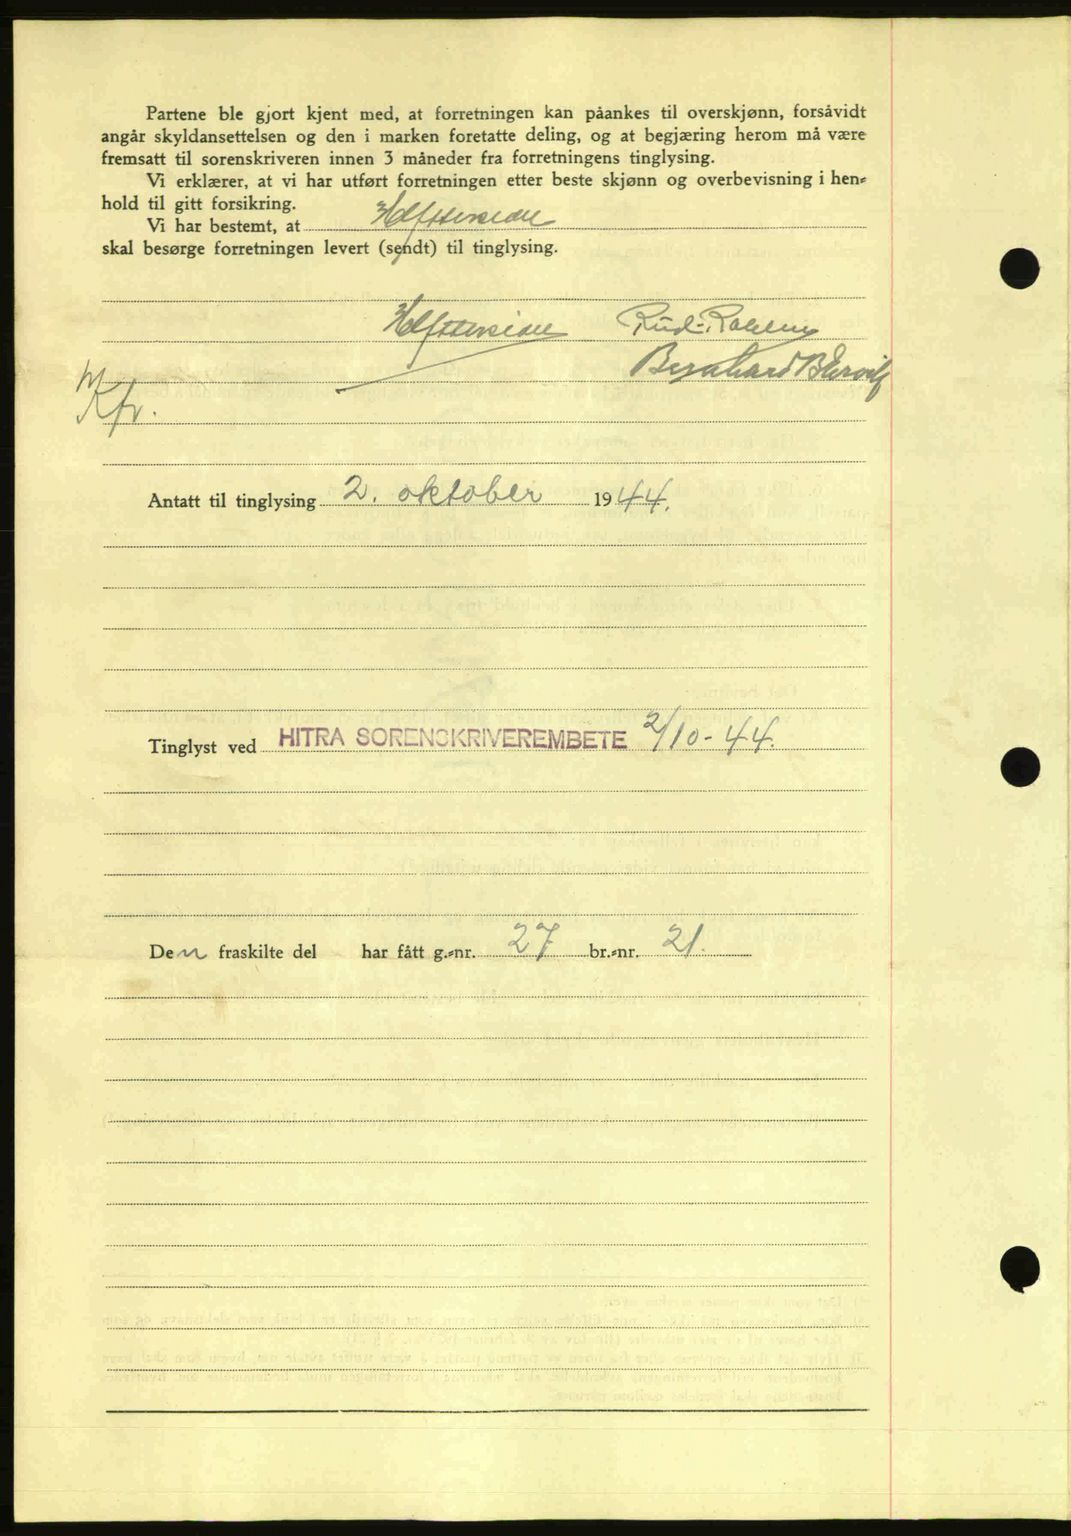 Partene ble gjort kjent med, at forretningen kan påankes til overskjønn, forsåvidt
angår skyldansettelsen og den i marken foretatte deling, og at begjæring herom må være
fremsatt til sorenskriveren innen 3 måneder fra forretningens tinglysing.
Vi erklærer, at vi har utført forretningen etter beste skjønn og overbevisning i hen-
hold til gitt forsikring.
Vi har bestemt, at
skal besørge forretningen levert (sendt) til tinglysing.
Bernhard
Kfr.
Antatt til tinglysing 2. oktober 1944.
Tinglyst ved HITRA SORENSKRIVEREMBETE 2/10-44.
Den fraskilte del har fått g.-nr. 27 br.-nr. 21.